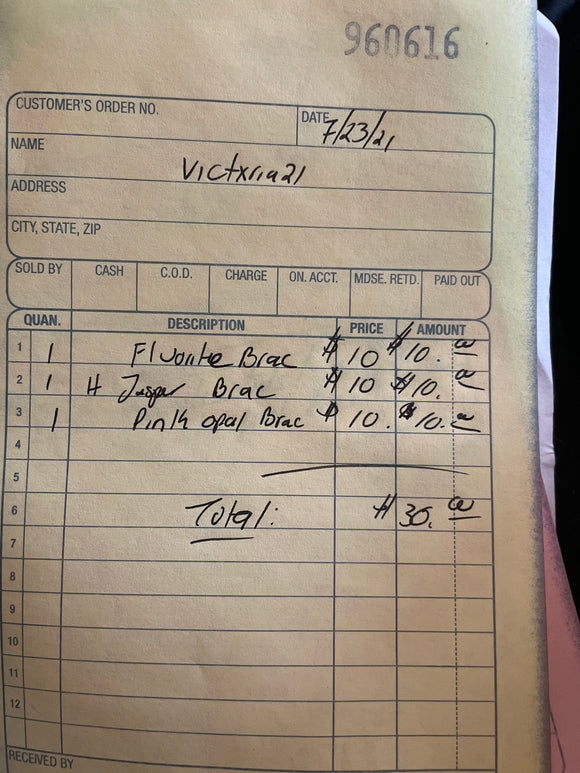 960616
CUSTOMER'S ORDER NO. DATE 7/23/21
NAME Victxria21
ADDRESS
CITY, STATE, ZIP
SOLD BY CASH C.O.D. CHARGE ON. ACCT. MDSE. RETD. PAID OUT
QUAN. DESCRIPTION PRICE AMOUNT
1 1 Fluorite Brac $10 $10.00
2 1 H Jasper Brac $10 $10.00
3 1 Pink opal Brac $10. $10.00
4
5
6 Total: $30.00
7
8
9
10
11
12
RECEIVED BY